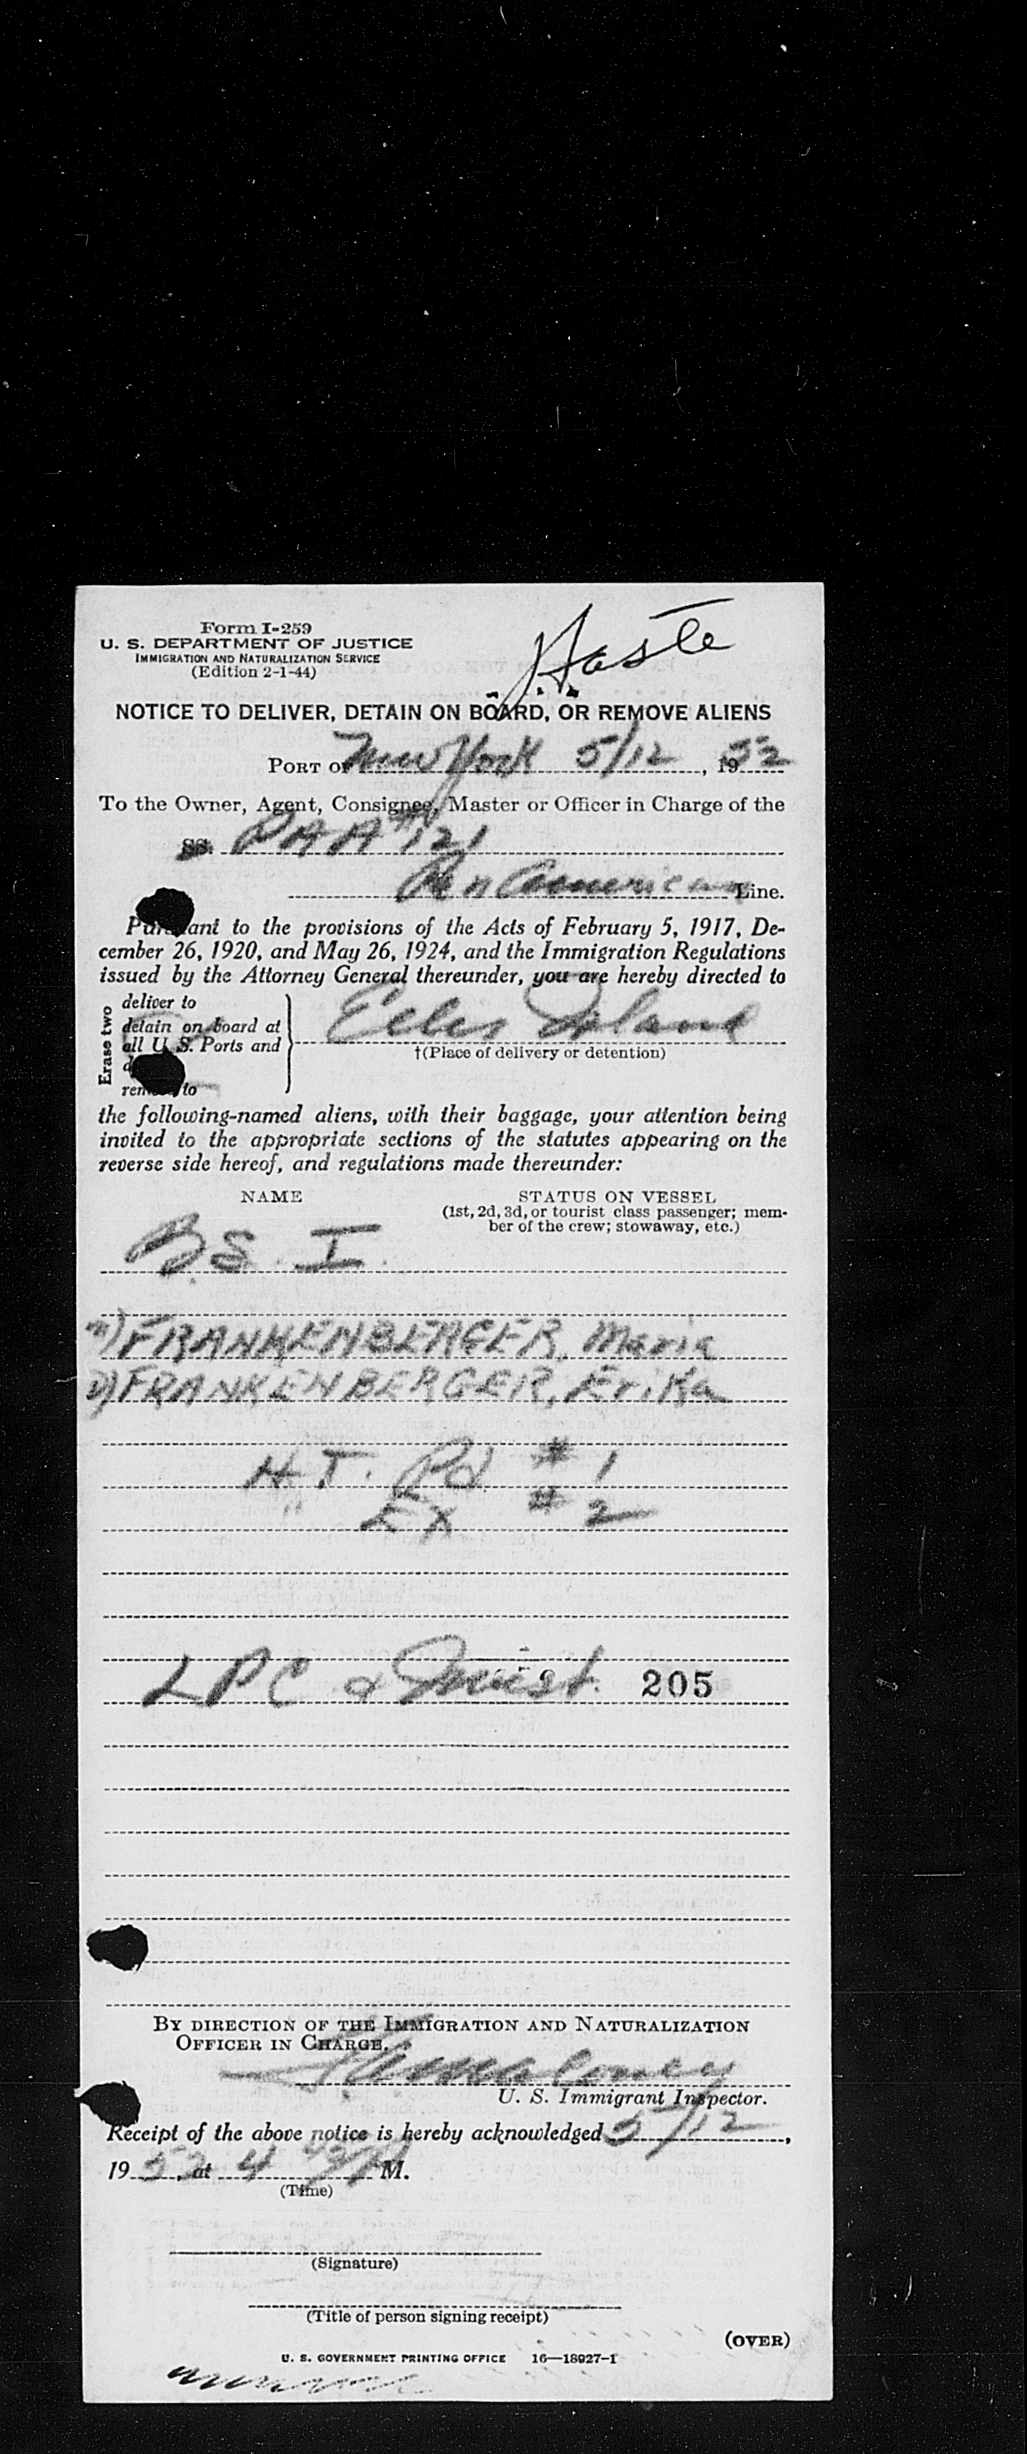 Form I-259
U. S. DEPARTMENT OF JUSTICE
IMMIGRATION AND NATURALIZATION SERVICE
(Edition 2-1-44)
NOTICE TO DELIVER, DETAIN ON BOARD, OR REMOVE ALIENS
PORT OF New York 5/12, 1952
To the Owner, Agent, Consignee, Master or Officer in Charge of the
SS. PAA # 121
Pan American Line.
Pursuant to the provisions of the Acts of February 5, 1917, De-
cember 26, 1920, and May 26, 1924, and the Immigration Regulations
issued by the Attorney General thereunder, you are hereby directed to
Erase two
deliver to
detain on board at
all U. S. Ports and
remove to
Ellis Island
†(Place of delivery or detention)
the following-named aliens, with their baggage, your attention being
invited to the appropriate sections of the statutes appearing on the
reverse side hereof, and regulations made thereunder:
NAME STATUS ON VESSEL
(1st, 2d, 3d, or tourist class passenger; mem-
ber of the crew; stowaway, etc.)
B. S. I.
FRANKENBERGER, Maria
FRANKENBERGER, Erika
H.T. Pd # 1
" Ex # 2
LPC & 205
BY DIRECTION OF THE IMMIGRATION AND NATURALIZATION
OFFICER IN CHARGE.
Maloney
U. S. Immigrant Inspector.
Receipt of the above notice is hereby acknowledged 5/12,
1952, at 4 M.
(Time)
(Signature)
(Title of person signing receipt)
(OVER)
U. S. GOVERNMENT PRINTING OFFICE 16—18027-1